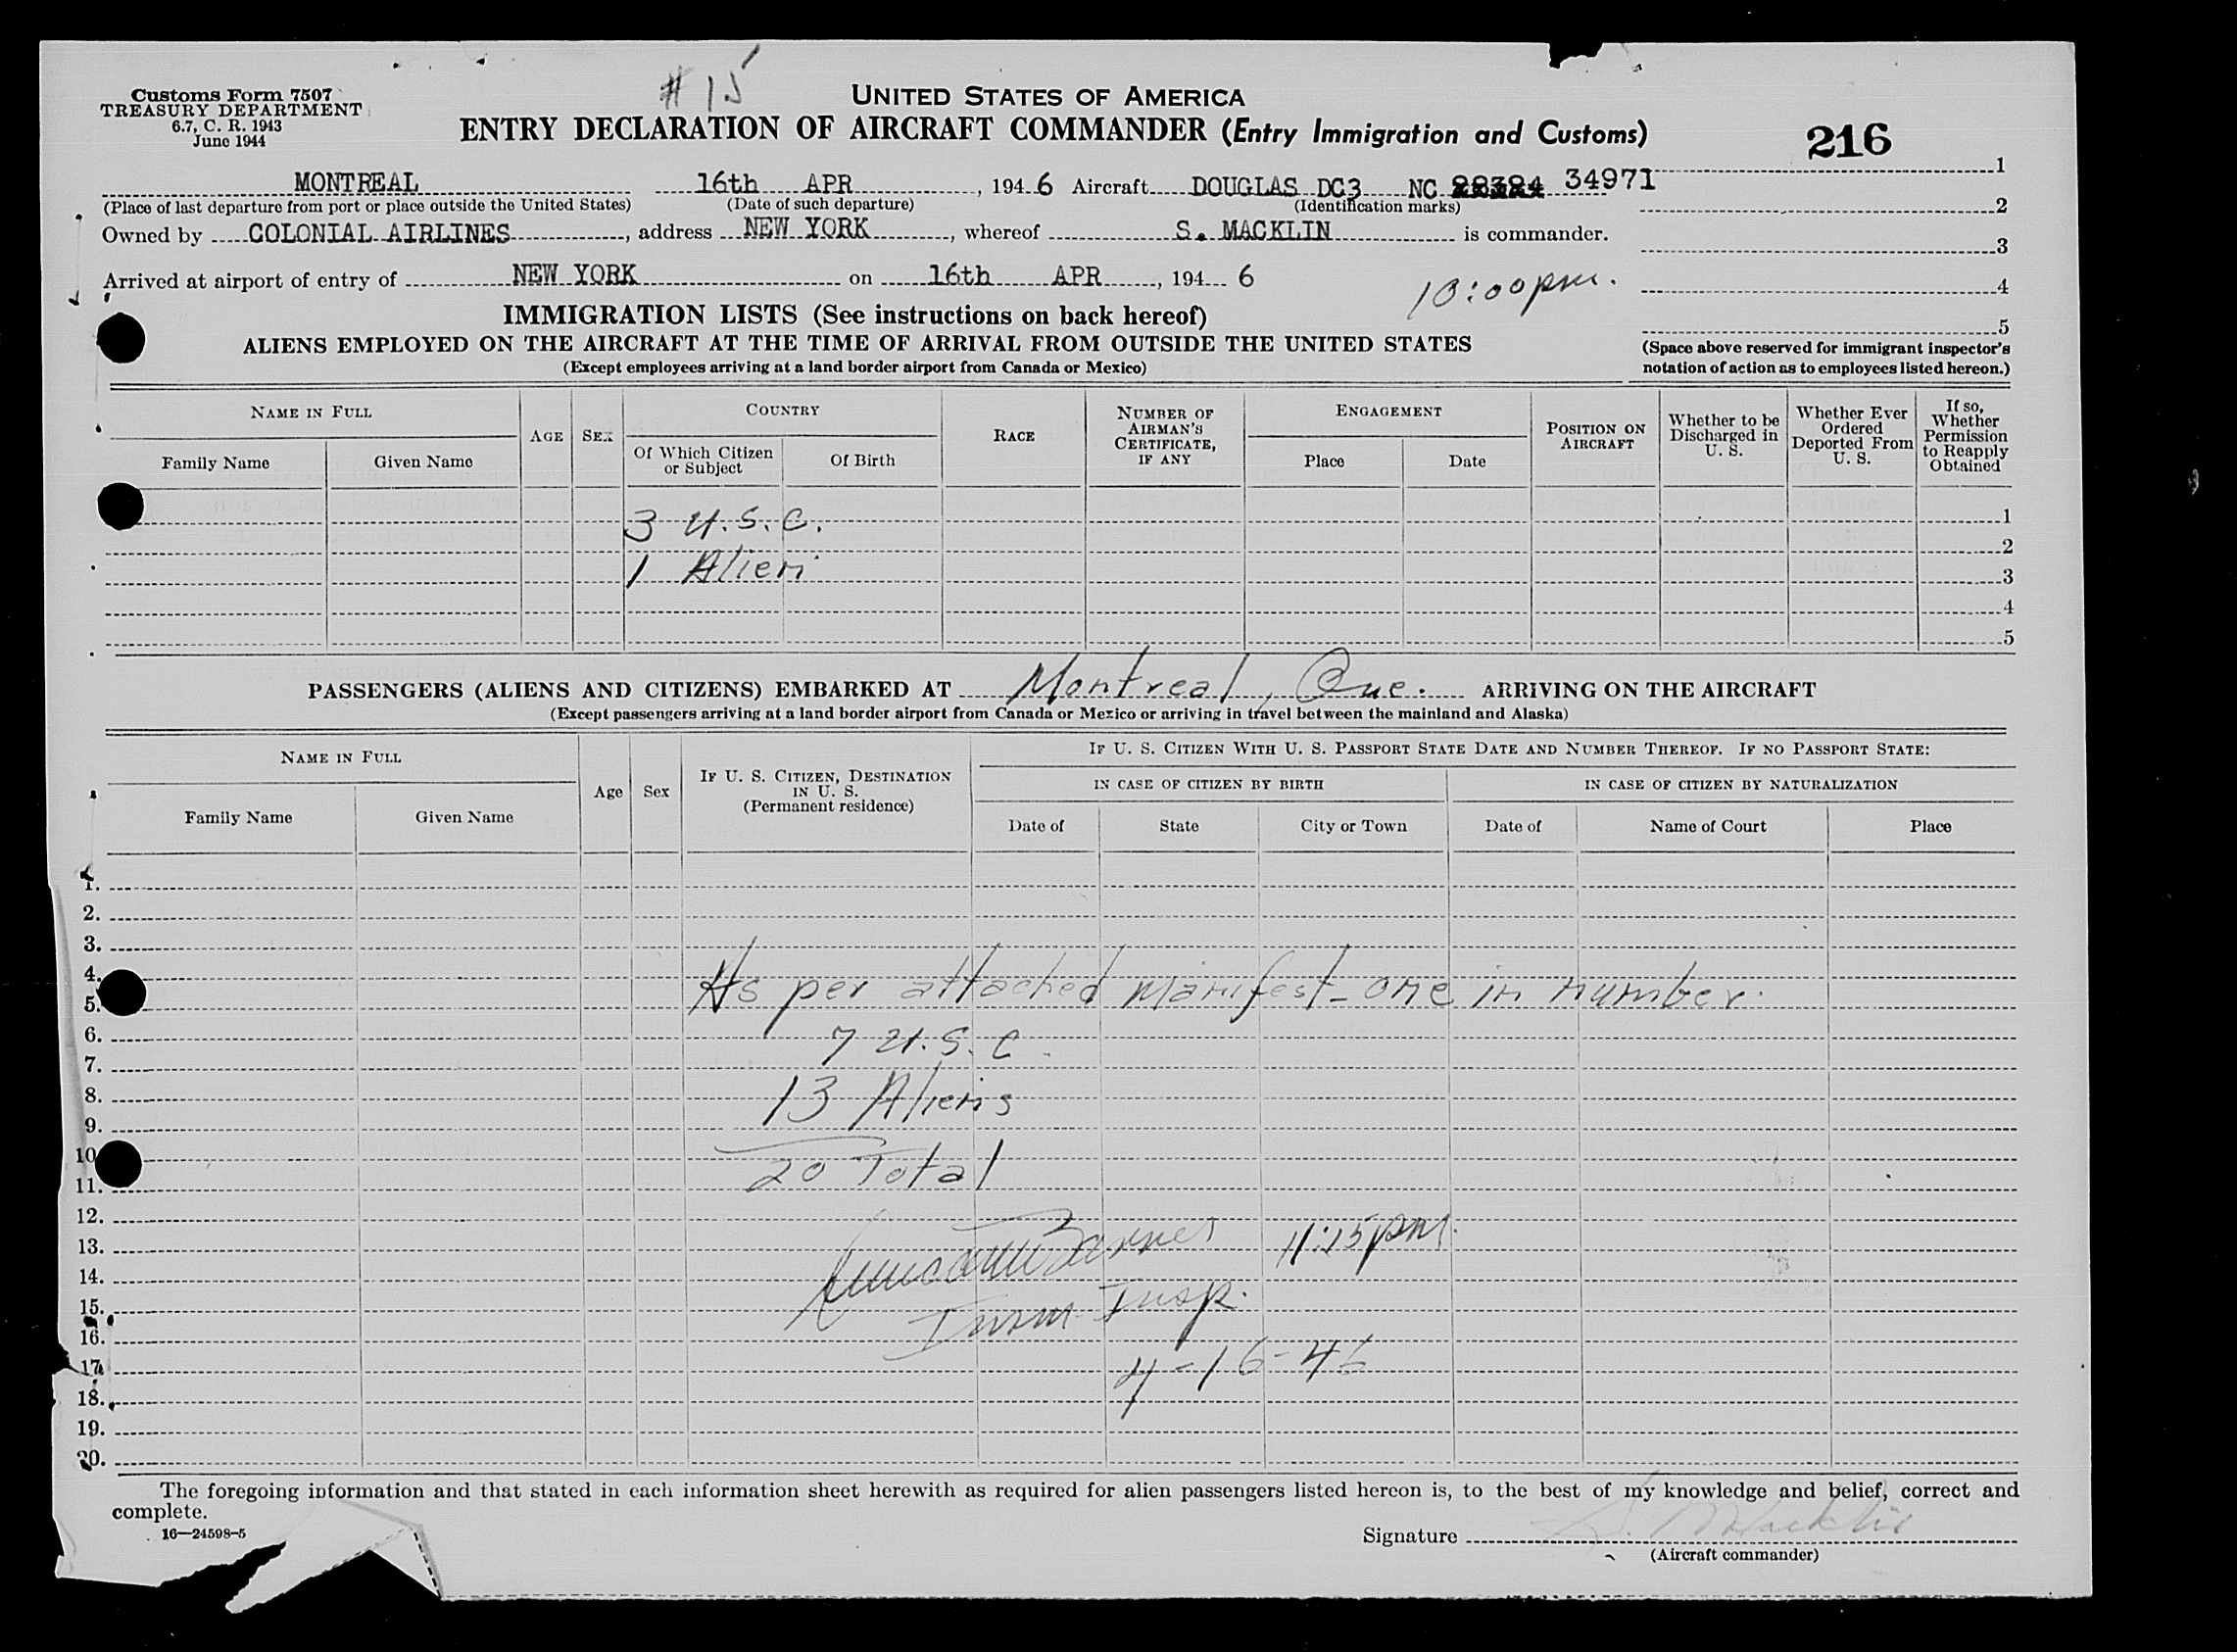 # 15
Customs Form 7507
TREASURY DEPARTMENT
6.7, C. R. 1943
June 1944
UNITED STATES OF AMERICA
ENTRY DECLARATION OF AIRCRAFT COMMANDER (Entry Immigration and Customs)
216
MONTREAL 16th APR, 194 6 Aircraft DOUGLAS DC3 NC 34971
(Place of last departure from port or place outside the United States) (Date of such departure) (Identification marks)
Owned by COLONIAL AIRLINES, address NEW YORK, whereof S. MACKLIN is commander.
Arrived at airport of entry of NEW YORK on 16th APR, 194 6
10:00 pm.
1
2
3
4
5
(Space above reserved for immigrant inspector's
notation of action as to employees listed hereon.)
IMMIGRATION LISTS (See instructions on back hereof)
ALIENS EMPLOYED ON THE AIRCRAFT AT THE TIME OF ARRIVAL FROM OUTSIDE THE UNITED STATES
(Except employees arriving at a land border airport from Canada or Mexico)
NAME IN FULL
Family Name Given Name
AGE
SEX
COUNTRY
Of Which Citizen or Subject
Of Birth
RACE
NUMBER OF AIRMAN'S CERTIFICATE, IF ANY
ENGAGEMENT
Place Date
POSITION ON AIRCRAFT
Whether to be Discharged in U. S.
Whether Ever Ordered Deported From U. S.
If so, Whether Permission to Reapply Obtained
3 U.S.C. 1
2
1 Alien 3
4
5
PASSENGERS (ALIENS AND CITIZENS) EMBARKED AT Montreal, Que. ARRIVING ON THE AIRCRAFT
(Except passengers arriving at a land border airport from Canada or Mexico or arriving in travel between the mainland and Alaska)
NAME IN FULL
Family Name Given Name
Age
Sex
IF U. S. CITIZEN, DESTINATION IN U. S.
(Permanent residence)
IF U. S. CITIZEN WITH U. S. PASSPORT STATE DATE AND NUMBER THEREOF. IF NO PASSPORT STATE:
IN CASE OF CITIZEN BY BIRTH
IN CASE OF CITIZEN BY NATURALIZATION
Date of State City or Town Date of Name of Court Place
1.
2.
3.
4.
5. As per attached manifest - one in number.
6.
7. 7 U.S.C.
8.
9. 13 Aliens
10
11. 20 Total
12.
13. 11:15 pm.
14.
15. Imm Insp.
16.
17. 4-16-46
18.
19.
20.
The foregoing information and that stated in each information sheet herewith as required for alien passengers listed hereon is, to the best of my knowledge and belief, correct and
complete.
16—24598-5
Signature S. Macklin
(Aircraft commander)